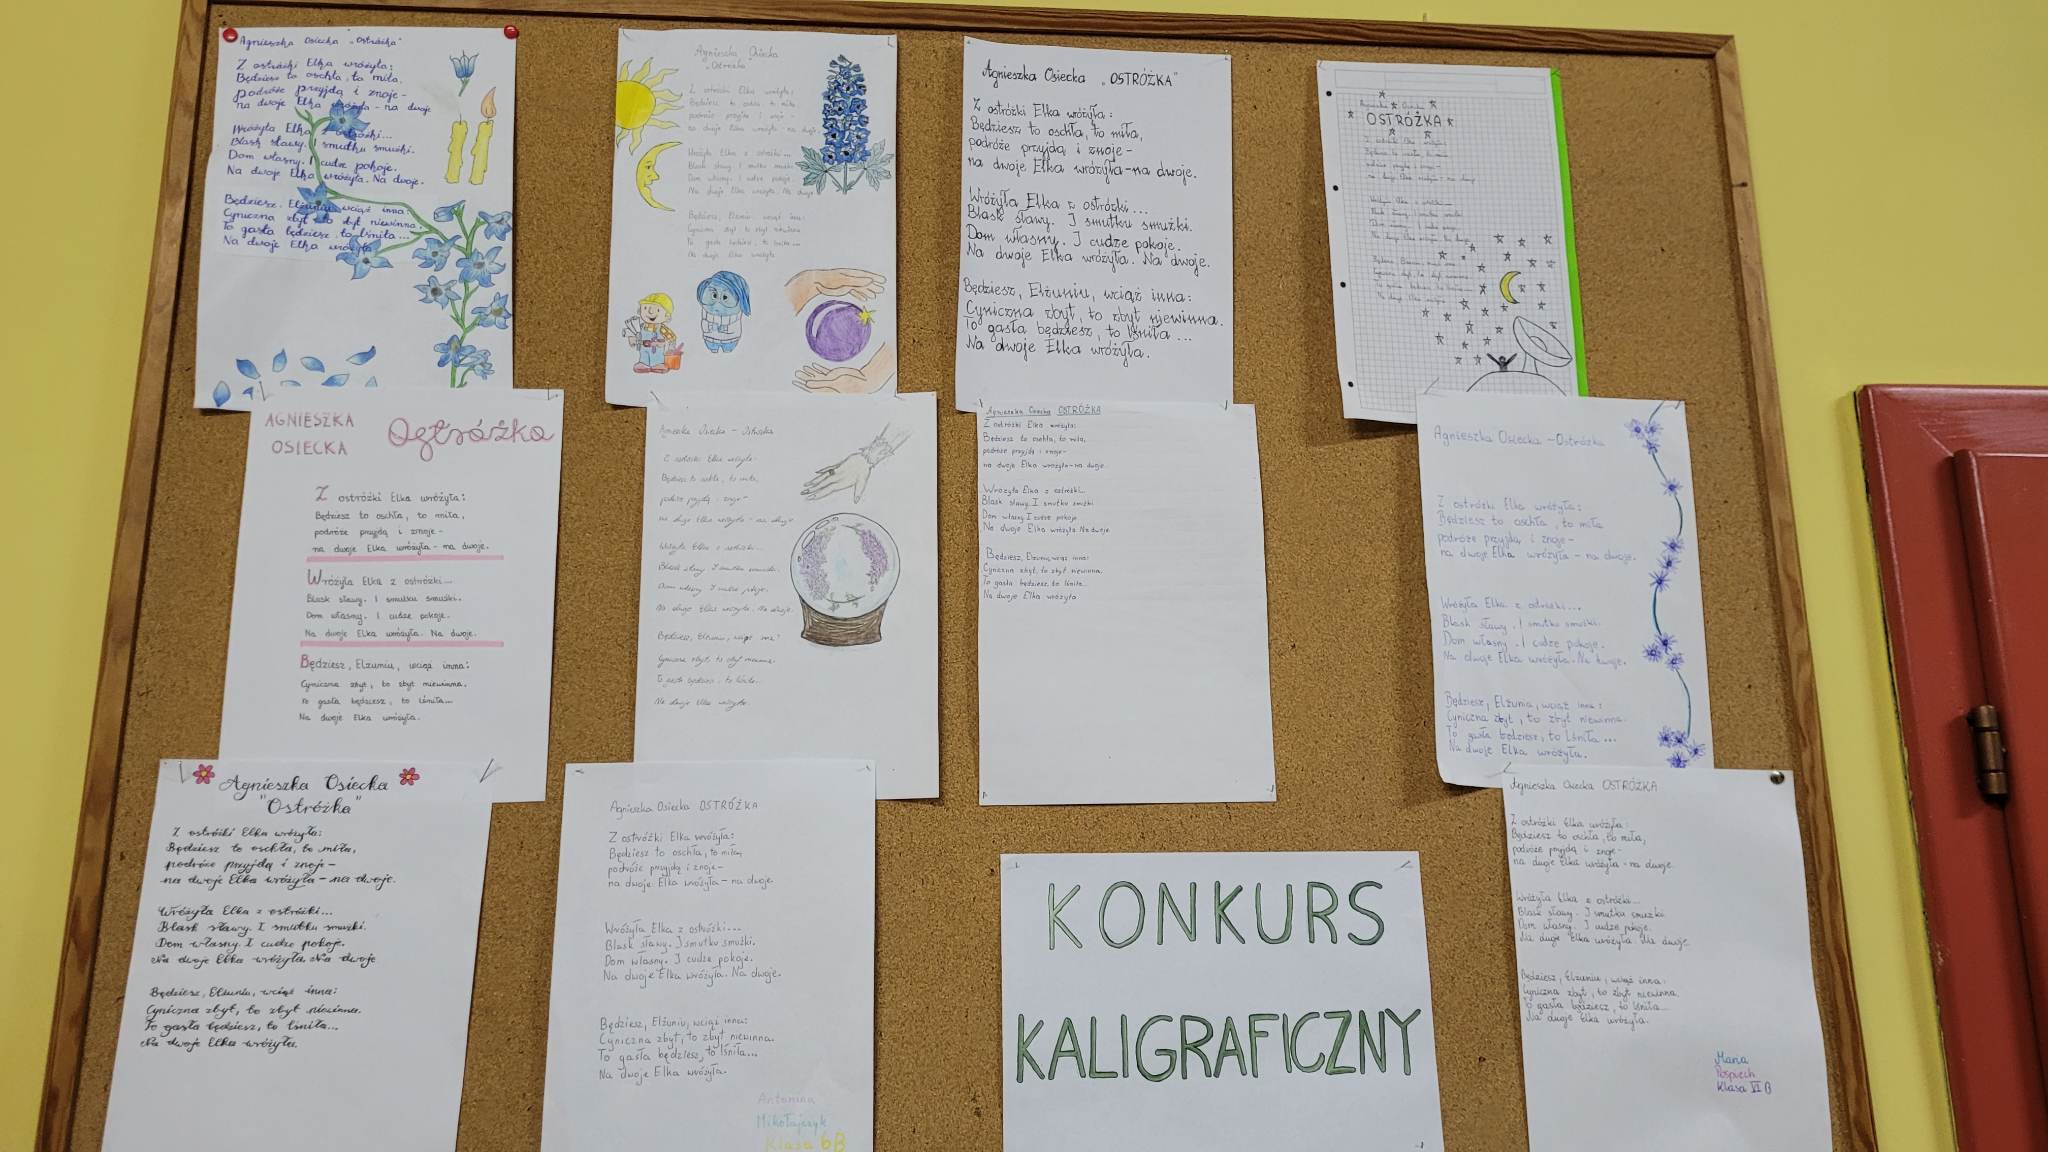 Agnieszka Osiecka „Ostróżka"
Z ostróżki Elka wróżyła:
Będziesz to oschła, to miła,
podróże przyjdą i znoje-
na dwoje Elka wróżyła - na dwoje
Wróżyła Elka z ostróżki...
Blask sławy. I smutku smużki.
Dom własny. I cudze pokoje.
Na dwoje Elka wróżyła. Na dwoje.
Będziesz, Elżuniu, wciąż inna:
Cyniczna zbyt, to zbyt niewinna.
To gasła będziesz, to lśniła...
Na dwoje Elka wróżyła
Agnieszka Osiecka
„Ostróżka"
Z ostróżki Elka wróżyła:
Będziesz to oschła, to miła,
podróże przyjdą i znoje -
na dwoje Elka wróżyła - na dwoje.
Wróżyła Elka z ostróżki...
Blask sławy. I smutku smużki.
Dom własny. I cudze pokoje.
Na dwoje Elka wróżyła. Na dwoje
Będziesz, Elżuniu, wciąż inna:
Cyniczna zbyt, to zbyt niewinna.
To gasła będziesz, to lśniła...
Na dwoje Elka wróżyła.
Agnieszka Osiecka „OSTRÓŻKA"
Z ostróżki Elka wróżyła:
Będziesz to oschła, to miła,
podróże przyjdą i znoje-
na dwoje Elka wróżyła-na dwoje.
Wróżyła Elka z ostróżki...
Blask sławy. I smutku smużki.
Dom własny. I cudze pokoje.
Na dwoje Elka wróżyła. Na dwoje.
Będziesz, Elżuniu, wciąż inna:
Cyniczna zbyt, to zbyt niewinna.
To gasła będziesz, to lśniła...
Na dwoje Elka wróżyła.
Agnieszka Osiecka
OSTRÓŻKA
Z ostróżki Elka wróżyła:
na dwoje Elka wróżyła - na dwoje
Wróżyła Elka z ostróżki...
AGNIESZKA
OSIECKA
Ostróżka
Z ostróżki Elka wróżyła:
Będziesz to oschła, to miła,
podróże przyjdą i znoje-
na dwoje Elka wróżyła - na dwoje.
Wróżyła Elka z ostróżki...
Blask sławy. I smutku smużki.
Dom własny. I cudze pokoje.
Na dwoje Elka wróżyła. Na dwoje.
Będziesz, Elżuniu, wciąż inna:
Cyniczna zbyt, to zbyt niewinna.
To gasła będziesz, to lśniła...
Na dwoje Elka wróżyła.
Agnieszka Osiecka - Ostróżka
Z ostróżki Elka wróżyła:
Będziesz to oschła, to miła,
podróże przyjdą i znoje-
na dwoje Elka wróżyła - na dwoje
Wróżyła Elka z ostróżki...
Blask sławy. I smutku smużki.
Dom własny. I cudze pokoje.
Na dwoje Elka wróżyła. Na dwoje.
Będziesz, Elżuniu, wciąż inna:
Cyniczna zbyt, to zbyt niewinna.
To gasła będziesz, to lśniła...
Na dwoje Elka wróżyła.
Agnieszka Osiecka OSTRÓŻKA
Z ostróżki Elka wróżyła:
Będziesz to oschła, to miła,
podróże przyjdą i znoje-
na dwoje Elka wróżyła-na dwoje.
Wróżyła Elka z ostróżki...
Blask sławy. I smutku smużki
Dom własny. I cudze pokoje
Na dwoje Elka wróżyła. Na dwoje
Będziesz, Elżuniu, wciąż inna:
Cyniczna zbyt, to zbyt niewinna.
To gasła będziesz, to lśniła...
Na dwoje Elka wróżyła
Agnieszka Osiecka - Ostróżka
Z ostróżki Elka wróżyła:
Będziesz to oschła, to miła
podróże przyjdą i znoje-
na dwoje Elka wróżyła - na dwoje.
Wróżyła Elka z ostróżki...
Blask sławy. I smutku smużki.
Dom własny. I cudze pokoje.
Na dwoje Elka wróżyła. Na dwoje.
Będziesz, Elżunia, wciąż inna:
Cyniczna zbyt, to zbyt niewinna.
To gasła będziesz, to lśniła...
Na dwoje Elka wróżyła.
Agnieszka Osiecka
"Ostróżka"
Z ostróżki Elka wróżyła:
Będziesz to oschła, to miła,
podróże przyjdą i znoje-
na dwoje Elka wróżyła - na dwoje.
Wróżyła Elka z ostróżki...
Blask sławy. I smutku smużki.
Dom własny. I cudze pokoje.
Na dwoje Elka wróżyła. Na dwoje
Będziesz, Elżuniu, wciąż inna:
Cyniczna zbyt, to zbyt niewinna.
To gasła będziesz, to lśniła...
Na dwoje Elka wróżyła.
Agnieszka Osiecka OSTRÓŻKA
Z ostróżki Elka wróżyła:
Będziesz to oschła, to miła,
podróże przyjdą i znoje-
na dwoje Elka wróżyła - na dwoje
Wróżyła Elka z ostróżki...
Blask sławy. I smutku smużki.
Dom własny. I cudze pokoje.
Na dwoje Elka wróżyła. Na dwoje.
Będziesz, Elżuniu, wciąż inna:
Cyniczna zbyt, to zbyt niewinna.
To gasła będziesz, to lśniła...
Na dwoje Elka wróżyła.
Antonina
Mikołajczyk
Klasa 6B
KONKURS
KALIGRAFICZNY
Agnieszka Osiecka OSTRÓŻKA
Z ostróżki Elka wróżyła:
Będziesz to oschła, to miła,
podróże przyjdą i znoje-
na dwoje Elka wróżyła - na dwoje.
Wróżyła Elka z ostróżki...
Blask sławy. I smutku smużki.
Dom własny. I cudze pokoje.
Na dwoje Elka wróżyła. Na dwoje.
Będziesz, Elżuniu, wciąż inna:
Cyniczna zbyt, to zbyt niewinna.
To gasła będziesz, to lśniła...
Na dwoje Elka wróżyła.
Maria
Pośpiech
Klasa VI B